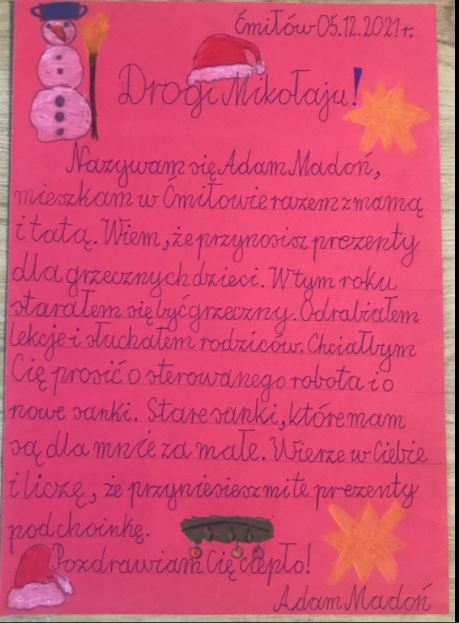 Ćmiłów 05.12.2021 r.
Drogi Mikołaju!
Nazywam się Adam Madoń,
mieszkam w Ćmiłowie razem z mamą
i tatą. Wiem, że przynosisz prezenty
dla grzecznych dzieci. W tym roku
starałem się być grzeczny. Odrabiałem
lekcje i słuchałem rodziców. Chciałbym
Cię prosić o sterowanego robota i o
nowe sanki. Stare sanki, które mam
są dla mnie za małe. Wierze w Ciebie
i liczę, że przyniesiesz mi te prezenty
pod choinkę.
Pozdrawiam Cię ciepło!
Adam Madoń